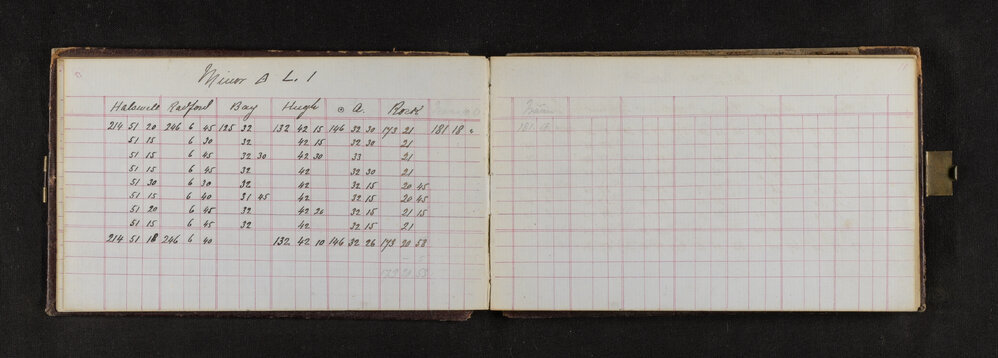 Minor B L. 1
Halswell Radford Bay Hugh ⊙ A. Rock
214 51 20 246 6 45 125 32 132 42 15 146 32 30 173 21 181 18 "
51 15 6 30 32 42 15 32 30 21
51 15 6 45 32 30 42 30 33 21
51 15 6 45 32 42 32 30 21
51 30 6 30 32 42 32 15 20 45
51 15 6 40 31 45 42 32 15 20 45
51 20 6 45 32 42 20 32 15 21 15
51 15 6 45 32 42 32 15 21
214 51 18 246 6 40 132 42 10 146 32 26 173 20 58